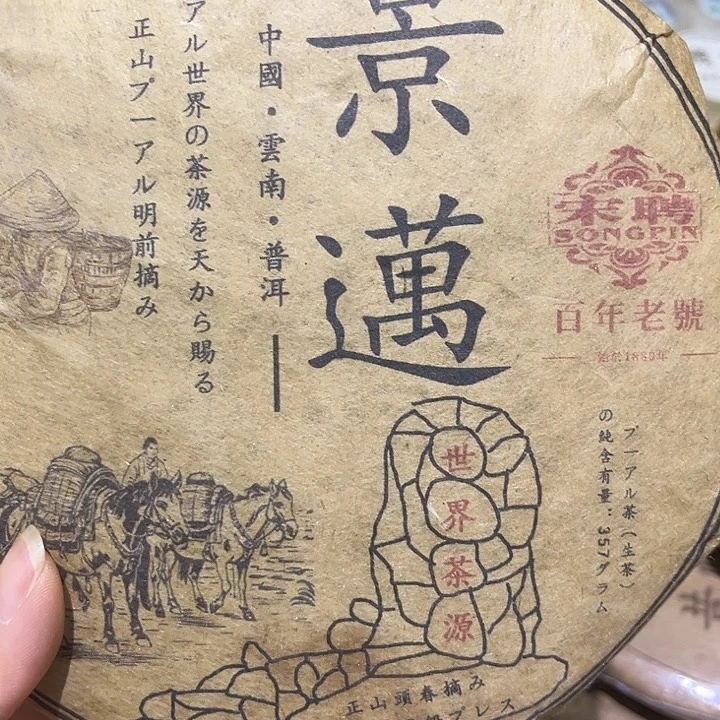 景邁
中國・雲南・普洱
アル世界の茶源を天から賜る
正山プーアル明前摘み
宋聘
SONGPIN
百年老號
始於1880年
プーアル茶(生茶)
の純含有量:357グラム
世界茶源
正山頭春摘み
プレス